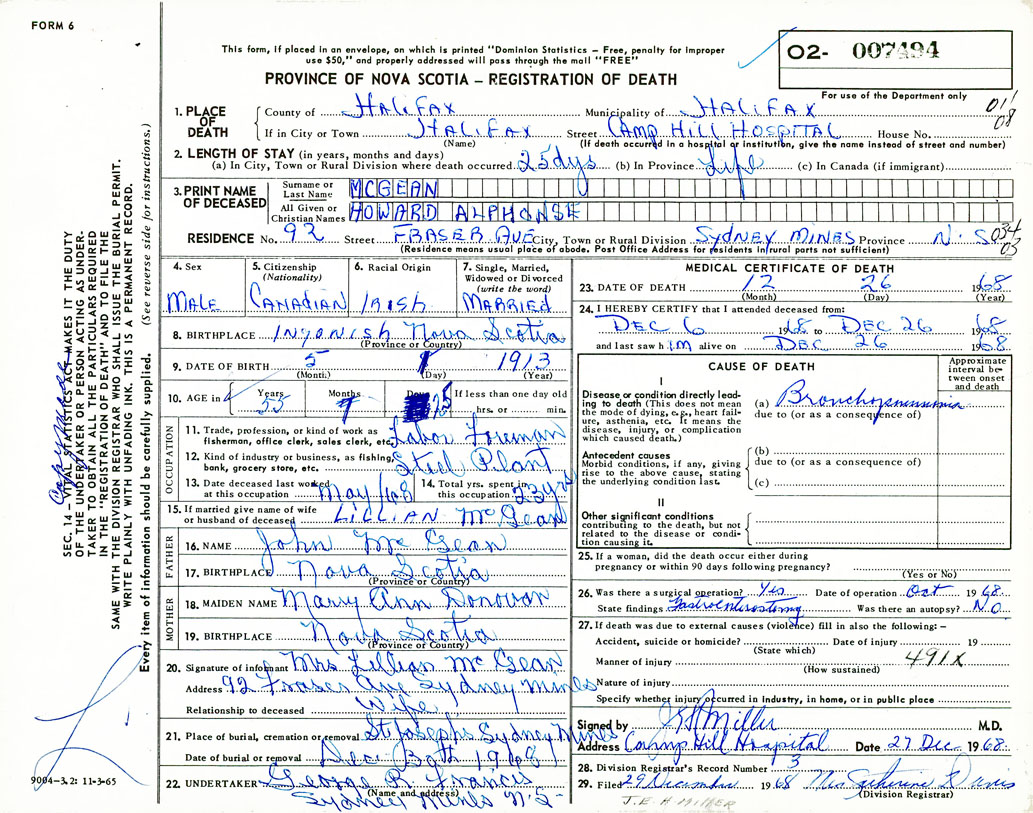 FORM 6
This form, if placed in an envelope, on which is printed "Dominion Statistics – Free, penalty for improper
use $50," and properly addressed will pass through the mail "FREE"
PROVINCE OF NOVA SCOTIA – REGISTRATION OF DEATH
O2- 007494
For use of the Department only
011
08
1. PLACE OF DEATH
County of HALIFAX Municipality of HALIFAX
If in City or Town HALIFAX Street CAMP HILL HOSPITAL House No.
(Name) (If death occurred in a hospital or institution, give the name instead of street and number)
2. LENGTH OF STAY (in years, months and days)
(a) In City, Town or Rural Division where death occurred 25 dys (b) In Province Life (c) In Canada (if immigrant)
3. PRINT NAME OF DECEASED
Surname or Last Name MCGEAN
All Given or Christian Names HOWARD ALPHONSE
RESIDENCE No. 92 Street FRASER AVE City, Town or Rural Division SYDNEY MINES Province N.S
034
03
(Residence means usual place of abode. Post Office Address for residents in rural parts not sufficient)
4. Sex MALE
5. Citizenship (Nationality) CANADIAN
6. Racial Origin IRISH
7. Single, Married, Widowed or Divorced (write the word) MARRIED
8. BIRTHPLACE Ingonish Nova Scotia
(Province or Country)
9. DATE OF BIRTH 5 1 1913
(Month) (Day) (Year)
10. AGE in Years 55 Months 7 Days 25 If less than one day hrs. or min.
OCCUPATION
11. Trade, profession, or kind of work as fisherman, office clerk, sales clerk, etc. Labor Foreman
12. Kind of industry or business, as fishing, bank, grocery store, etc. Steel Plant
13. Date deceased last worked at this occupation May/68 14. Total yrs. spent in this occupation 23 yrs
15. If married give name of wife or husband of deceased LILLIAN McGean
FATHER
16. NAME John McGean
17. BIRTHPLACE Nova Scotia
(Province or Country)
MOTHER
18. MAIDEN NAME Mary Ann Donovan
19. BIRTHPLACE Nova Scotia
(Province or Country)
20. Signature of informant Mrs Lillian McGean
Address 92 Fraser Ave Sydney Mines
Relationship to deceased Wife
21. Place of burial, cremation or removal St Josephs Sydney Mines
Date of burial or removal Dec 30th 1968
22. UNDERTAKER George R. Francis
(Name and address)
Sydney Mines N.S
MEDICAL CERTIFICATE OF DEATH
23. DATE OF DEATH 12 26 1968
(Month) (Day) (Year)
24. I HEREBY CERTIFY that I attended deceased from:
DEC 6 1968 to DEC 26 1968
and last saw him alive on DEC 26 1968
CAUSE OF DEATH
Approximate interval between onset and death
I
Disease or condition directly leading to death (This does not mean the mode of dying, e.g., heart failure, asthenia, etc. It means the disease, injury, or complication which caused death.)
(a) Bronchopneumonia
due to (or as a consequence of)
Antecedent causes
Morbid conditions, if any, giving rise to the above cause, stating the underlying condition last.
(b)
due to (or as a consequence of)
(c)
II
Other significant conditions
contributing to the death, but not related to the disease or condition causing it.
25. If a woman, did the death occur either during
pregnancy or within 90 days following pregnancy?
(Yes or No)
26. Was there a surgical operation? Yes Date of operation Oct 1968
State findings Gastroenterostomy Was there an autopsy? NO
27. If death was due to external causes (violence) fill in also the following: –
Accident, suicide or homicide? Date of injury 19
(State which)
Manner of injury 491X
(How sustained)
Nature of injury
Specify whether injury occurred in industry, in home, or in public place
Signed by Miller M.D.
Address Camp Hill Hospital Date 27 Dec 1968
28. Division Registrar's Record Number 3
29. Filed 29 December 1968 Mrs Catherine Davis
(Division Registrar)
J.E.H. MILLER
SEC. 14 – VITAL STATISTICS ACT MAKES IT THE DUTY
OF THE UNDERTAKER OR PERSON ACTING AS UNDER-
TAKER TO OBTAIN ALL THE PARTICULARS REQUIRED
IN THE "REGISTRATION OF DEATH" AND TO FILE THE
SAME WITH THE DIVISION REGISTRAR WHO SHALL ISSUE THE BURIAL PERMIT.
WRITE PLAINLY WITH UNFADING INK. THIS IS A PERMANENT RECORD.
Every item of information should be carefully supplied. (See reverse side for instructions.)
9004-3.2: 11-3-65